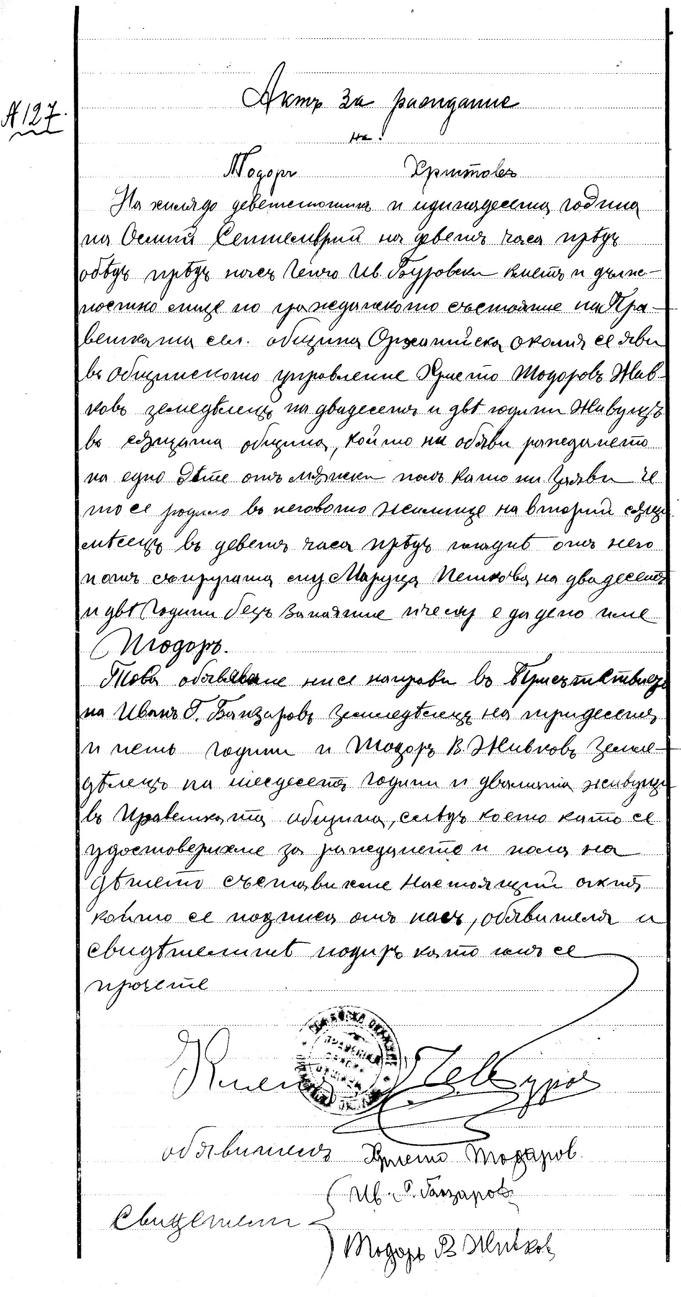 №127.
Актъ за раждание
на.
Тодоръ Христовъ
На хилядо деветстотинъ и единадесета година
на Осмий Септемврий на деветь часа прѣдъ
обѣдъ прѣдъ насъ Генчо Ив. Гауровски кметъ и длъж-
ностно лице по гражданското състояние на Пра-
вешката сел. община Орханийска околия се яви
въ общинското управление Христо Тодоровъ Жив-
ковъ земедѣлецъ на двадесетъ и двѣ години живущъ
въ същата община, който ни обяви раждането
на едно дѣте отъ мѫжски полъ като ни заяви че
то се родило въ неговото жилище на вторий сѫщи
мѣсецъ въ деветъ часа прѣдъ пладнѣ отъ него
и отъ съпругата му Маруца Петкова на двадесетъ
и двѣ години безъ занятие и е дадено име
Тодоръ.
Това обявяване ни се направи въ присѫтствието
на Иванъ Г. Банзаровъ земледѣлецъ на тридесетъ
и петь години и Тодоръ В. Живковъ земле-
дѣлецъ на шесдесетъ години и двамата живущи
въ Правешката община, слѣдъ което като се
удостоверихме за раждането и пола на
дѣтето съставихме настоящий актъ
който се подписа отъ насъ, обявителя и
свидѣтелитѣ подиръ като имъ се
прочете
Кметъ
обявителъ Христо Тодоров.
Ив. Г. Банзаровъ
Свидетели
Тодоръ В Живков